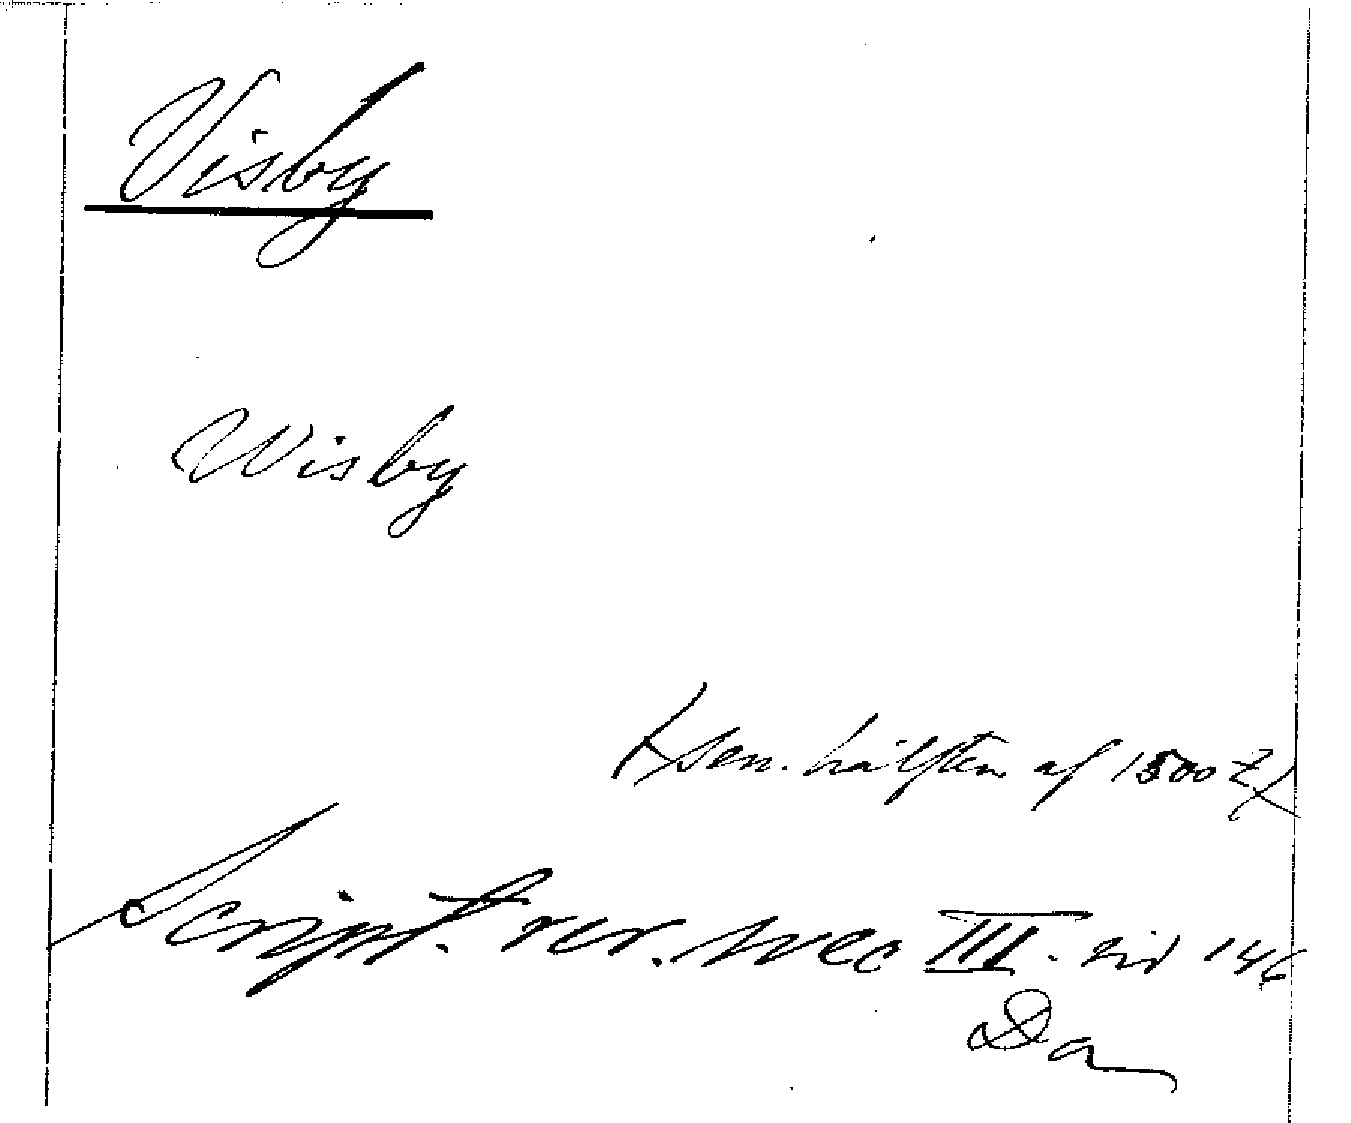 Visby
Wisby
(sen. hälften af 1500 t.)
Script. rer. svec III. sid 146
Da